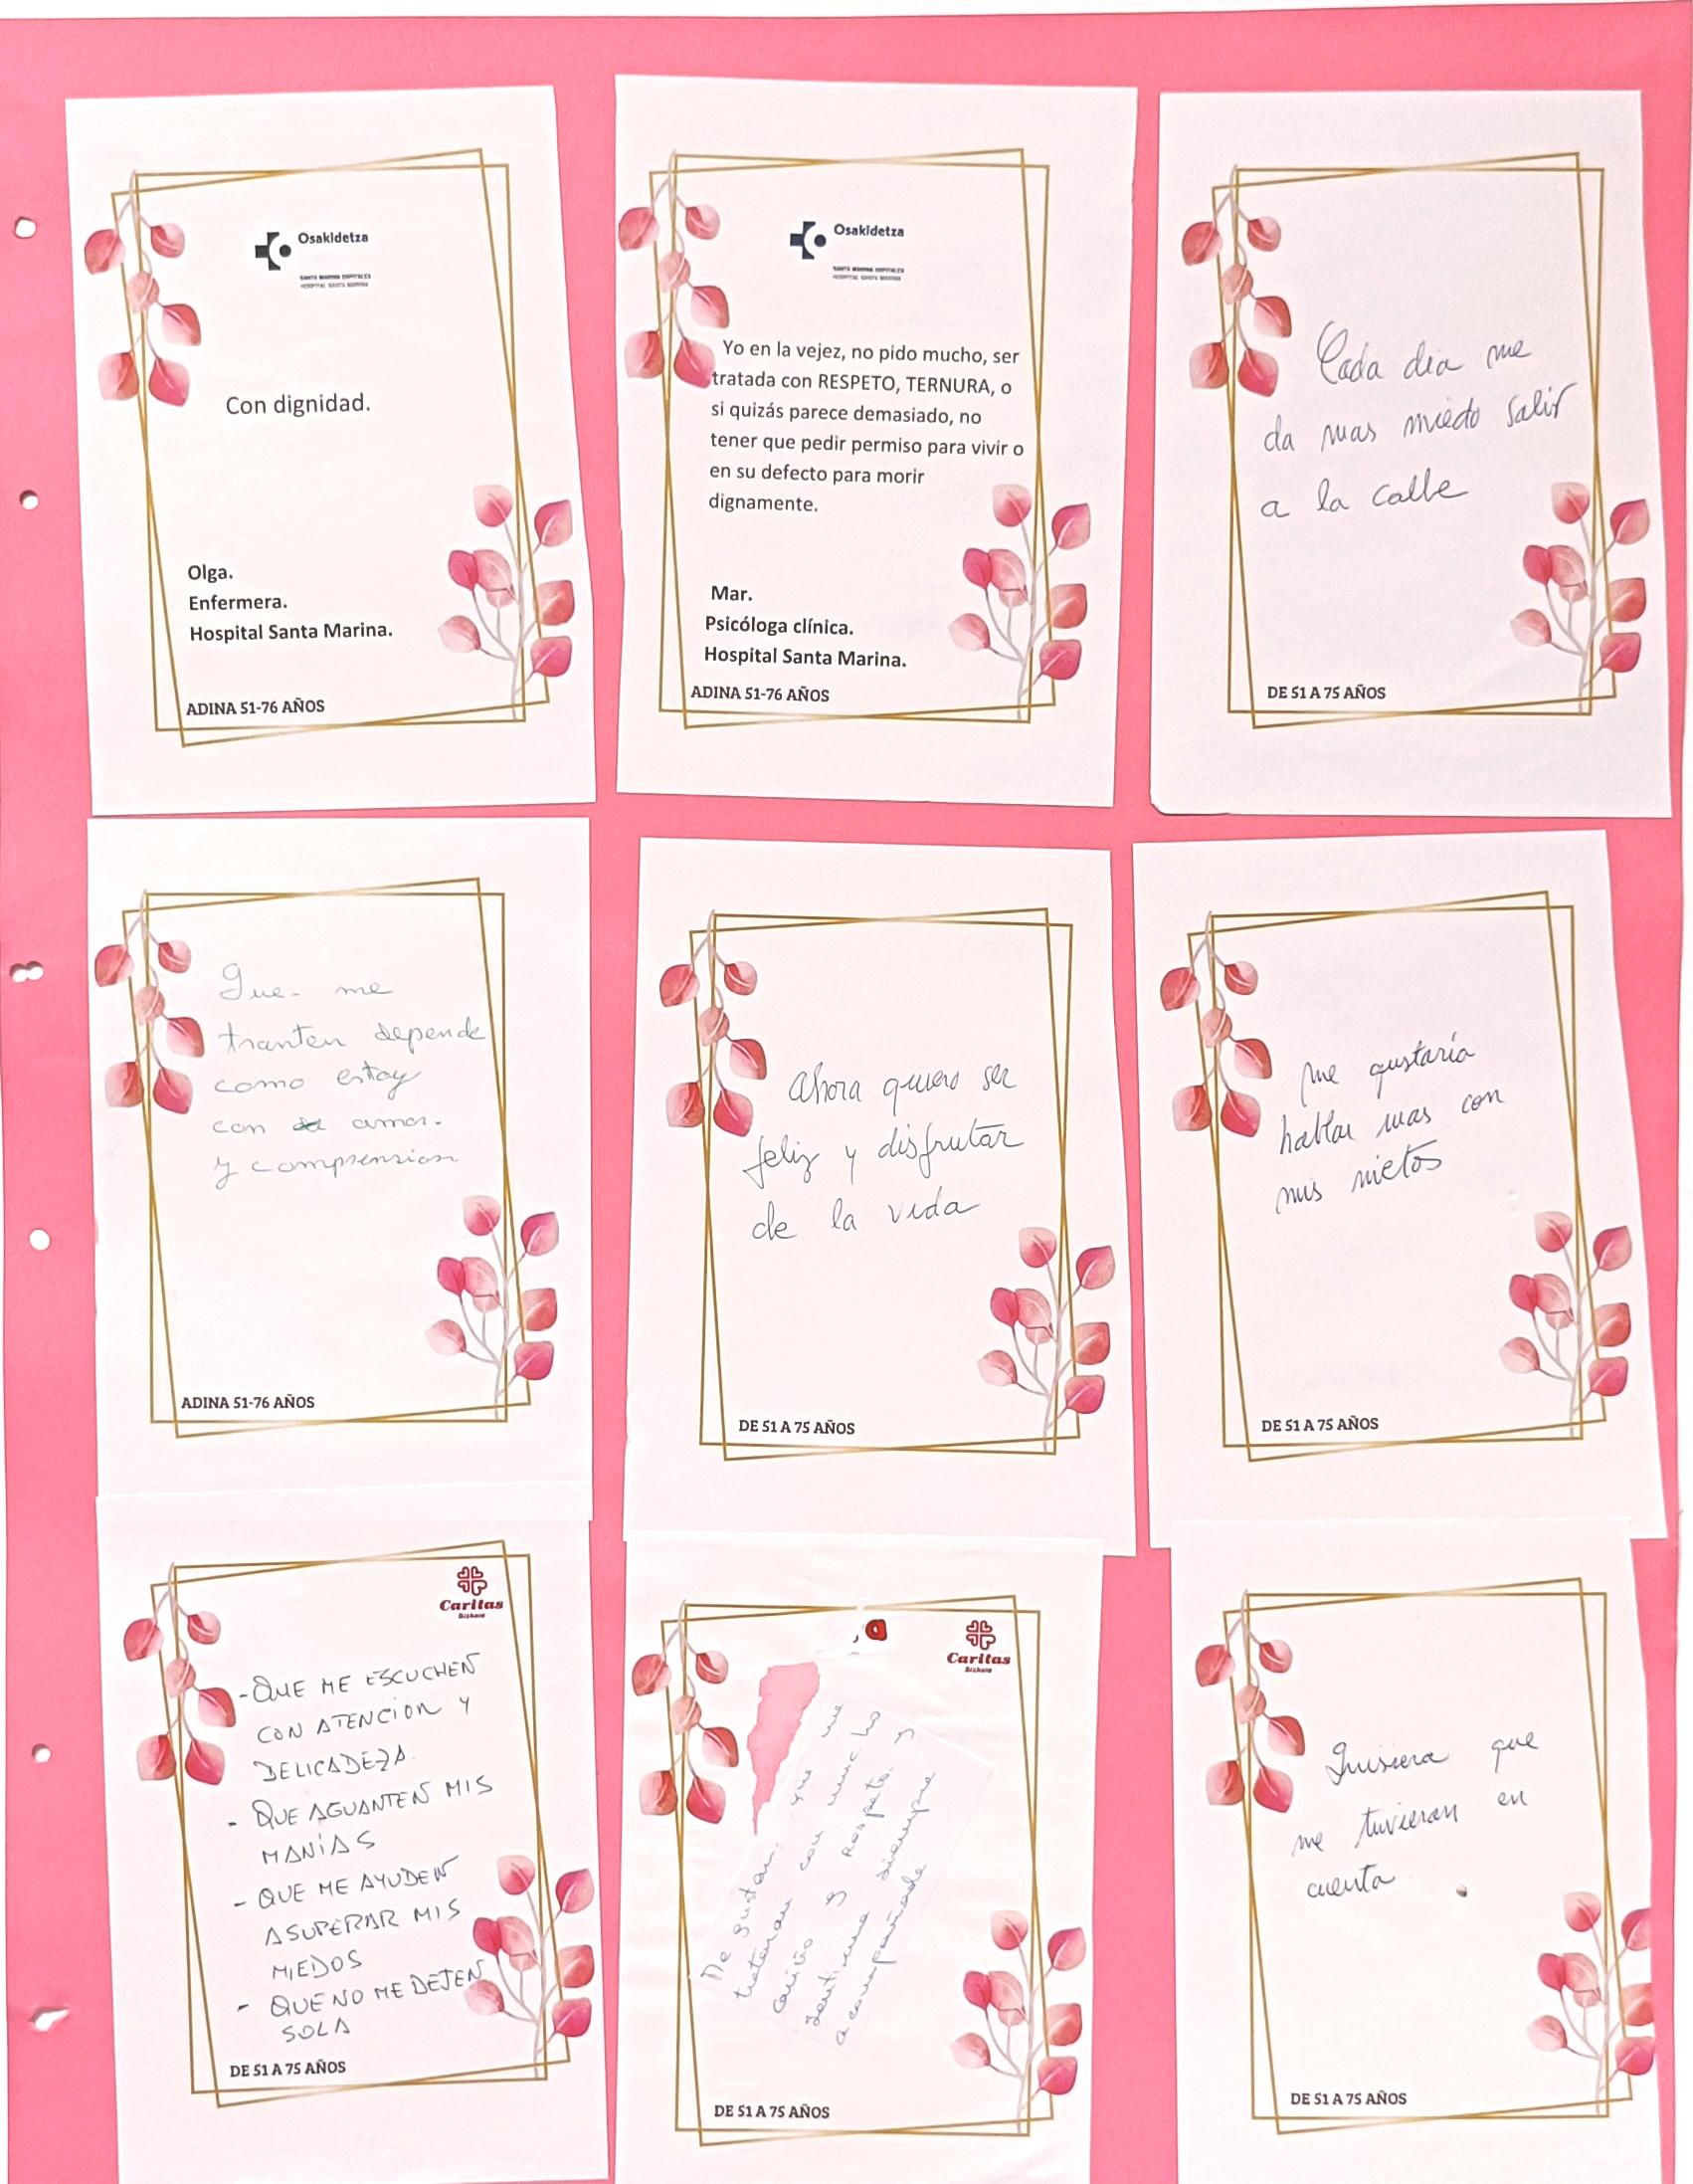 Osakidetza
SANTA MARINA OSPITALEA
HOSPITAL SANTA MARINA
Con dignidad.
Olga.
Enfermera.
Hospital Santa Marina.
ADINA 51-76 AÑOS
Osakidetza
SANTA MARINA OSPITALEA
HOSPITAL SANTA MARINA
Yo en la vejez, no pido mucho, ser
tratada con RESPETO, TERNURA, o
si quizás parece demasiado, no
tener que pedir permiso para vivir o
en su defecto para morir
dignamente.
Mar.
Psicóloga clínica.
Hospital Santa Marina.
ADINA 51-76 AÑOS
Cada dia me
da mas miedo salir
a la calle
DE 51 A 75 AÑOS
Que- me
tranten depende
como estoy
con amor-
y comprension
ADINA 51-76 AÑOS
Ahora quiero ser
feliz y disfrutar
de la vida
DE 51 A 75 AÑOS
Me gustaría
hablar mas con
mis nietos
DE 51 A 75 AÑOS
Caritas
Bizkaia
- QUE ME ESCUCHEN
CON ATENCION Y
DELICADEZA.
- QUE AGUANTEN MIS
MANÍAS
- QUE ME AYUDEN
A SUPERAR MIS
MIEDOS
- QUE NO ME DEJEN
SOLA
DE 51 A 75 AÑOS
a
Caritas
Bizkaia
Me gustari que me
trataran con mucho
cariño y Respeto. y
sentirme siempre
acompañada
DE 51 A 75 AÑOS
Quisiera que
me tuvieran en
cuenta
DE 51 A 75 AÑOS